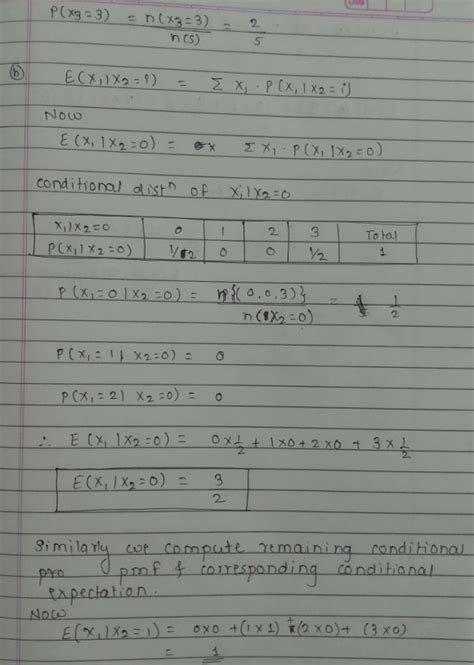 P(x3=3) = n(x3=3) / n(S) = 2/5
(b) E(X1|X2=i) = Σ X1 · P(X1|X2=i)
Now
E(X1|X2=0) = x Σ X1 · P(X1|X2=0)
conditional distn of X1|X2=0
X1|X2=0 0 1 2 3 Total
P(X1|X2=0) 1/2 0 0 1/2 1
P(X1=0|X2=0) = n{(0,0,3)} / n(X2=0) = 1/2
P(X1=1|X2=0) = 0
P(X1=2|X2=0) = 0
∴ E(X1|X2=0) = 0×1/2 + 1×0+2×0 + 3×1/2
E(X1|X2=0) = 3/2
Similarly we compute remaining conditional
pro pmf & corresponding conditional
expectation.
Now
E(X1|X2=1) = 0×0 +(1×1) + (2×0)+ (3×0)
= 1